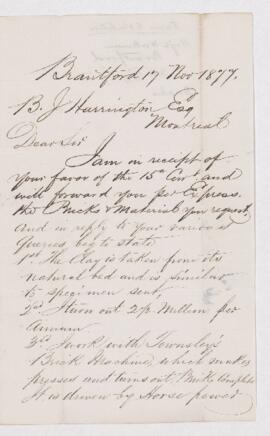 Brantford 17 Nov 1877.
B. J. Harrington Esq
Montreal
Dear Sir
I am in receipt of
your favor of the 15th Curt and
will forward you per Express
the Bricks & Material you request,
and in reply to your various
Queries, beg to state
1st The Clay is taken from its
natural bed and is similar
to specimen sent,
2nd I turn out 2½ Million per
Annum
3rd I work with Townsley's
Brick Machine, which makes
pressed and turns out, Brick complete
It is driven by Horse power